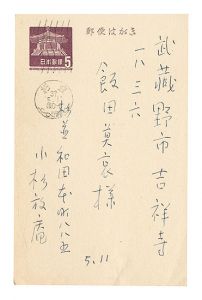 郵便はがき
日本郵便
5
武蔵野市吉祥寺
一八三六
飯田莫哀様
杉並和田本町八八五
小杉放庵
5.11